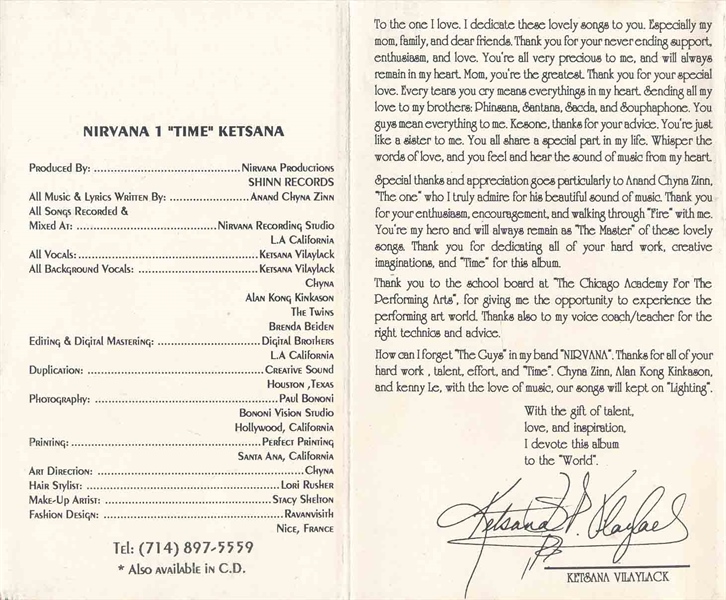 NIRVANA 1 "TIME" KETSANA
Produced By: ..........................................Nirvana Productions
SHINN RECORDS
All Music & Lyrics Written By: ......................Anand Chyna Zinn
All Songs Recorded &
Mixed At: ........................................Nirvana Recording Studio
L.A California
All Vocals: ................................................Ketsana Vilaylack
All Background Vocals: ..............................Ketsana Vilaylack
Chyna
Alan Kong Kinkason
The Twins
Brenda Beiden
Editing & Digital Mastering: ..........................Digital Brothers
L.A California
Duplication: ..............................................Creative Sound
Houston ,Texas
Photography: ................................................Paul Bononi
Bononi Vision Studio
Hollywood, California
Printing: ......................................................Perfect Printing
Santa Ana, California
Art Direction: ......................................................Chyna
Hair Stylist: ......................................................Lori Rusher
Make-Up Artist: ..............................................Stacy Shelton
Fashion Design: ..............................................Ravanvisith
Nice, France
Tel: (714) 897-5559
* Also available in C.D.
To the one I love. I dedicate these lovely songs to you. Especially my
mom, family, and dear friends. Thank you for your never ending support,
enthusiasm, and love. You're all very precious to me, and will always
remain in my heart. Mom, you're the greatest. Thank you for your special
love. Every tears you cry means everythings in my heart. Sending all my
love to my brothers: Phinsana, Santana, Sacda, and Souphaphone. You
guys mean everything to me. Kesone, thanks for your advice. You're just
like a sister to me. You all share a special part in my life. Whisper the
words of love, and you feel and hear the sound of music from my heart.
Special thanks and appreciation goes particularly to Anand Chyna Zinn,
"The one" who I truly admire for his beautiful sound of music. Thank you
for your enthusiasm, encouragement, and walking through "Fire" with me.
You're my hero and will always remain as "The Master" of these lovely
songs. Thank you for dedicating all of your hard work, creative
imaginations, and "Time" for this album.
Thank you to the school board at "The Chicago Academy For The
Performing Arts", for giving me the opportunity to experience the
performing art world. Thanks also to my voice coach/teacher for the
right technics and advice.
How can I forget "The Guys" in my band "NIRVANA". Thanks for all of your
hard work , talent, effort, and "Time". Chyna Zinn, Alan Kong Kinkason,
and kenny Le, with the love of music, our songs will kept on "Lighting".
With the gift of talent,
love, and inspiration,
I devote this album
to the "World".
Ketsana P. Vilaylack
KETSANA VILAYLACK